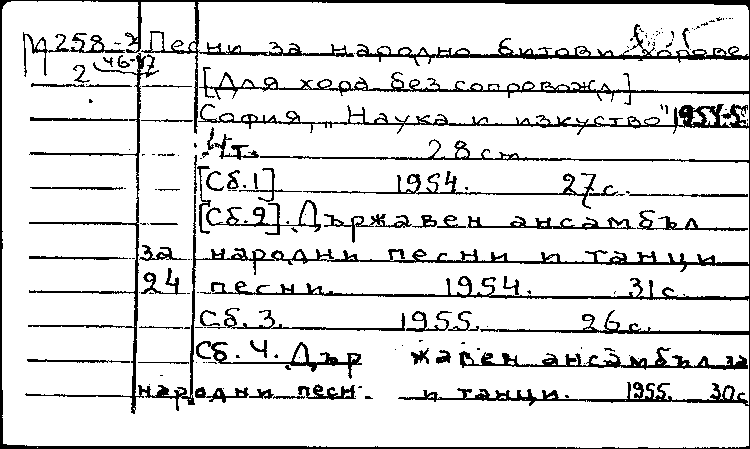 М 258-3 Песни за народно битови хорове
2 46-47
[Для хора без сопровожд.]
София, „Наука и изкуство", 1954-55
4т. 28 cm
[Сб.1] 1954. 27с.
[Сб.2]. Държавен ансамбъл
за народни песни и танци
24 песни. 1954. 31с.
Сб. 3. 1955. 26с.
Сб. 4. Държавен ансамбъл за
народни песн. и танци. 1955. 30с